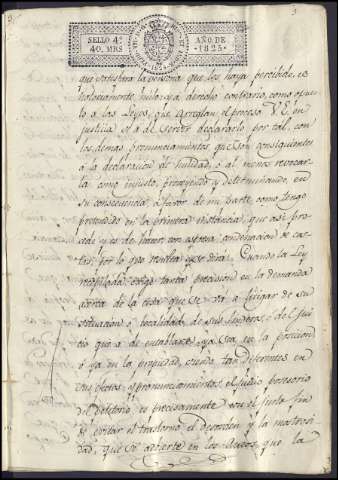 SELLO 4º
40. MRS
AÑO DE
1825
que satisfará la persona que les haya percibido, es
notoriamente nulo, y a derecho contrario, como opues
to a las Leyes, que arreglan el proceso. V.E. en
justicia se ha de servir declararlo por tal, con
los demas pronunciamientos que son consiguientes
á la declaración de nulidad, o al menos revocar
la como injusto, proveyendo y determinando, en
su consecuencia, á favor de mi parte como tengo
pretendido en la primera instancia, que asi pro
cede y es de hacer con expresa condenacion de cos
tas, por lo que resulta y se dirá. Cuando la Ley
recopilada exige tanta precision en la demanda
acerca de la cosa que se va a litigar de su
situacion o localidad, de sus linderos, o de el jui
cio que a de entablarse, ya sea en la posecion
o ya en la propiedad, siendo tan diferentes en
sus efectos, y pronunciamientos, el juicio posesorio
del petitorio, es precisamente con el justo fin
de evitar el trastorno el desorden y la
que se advierte en los Autos, que la